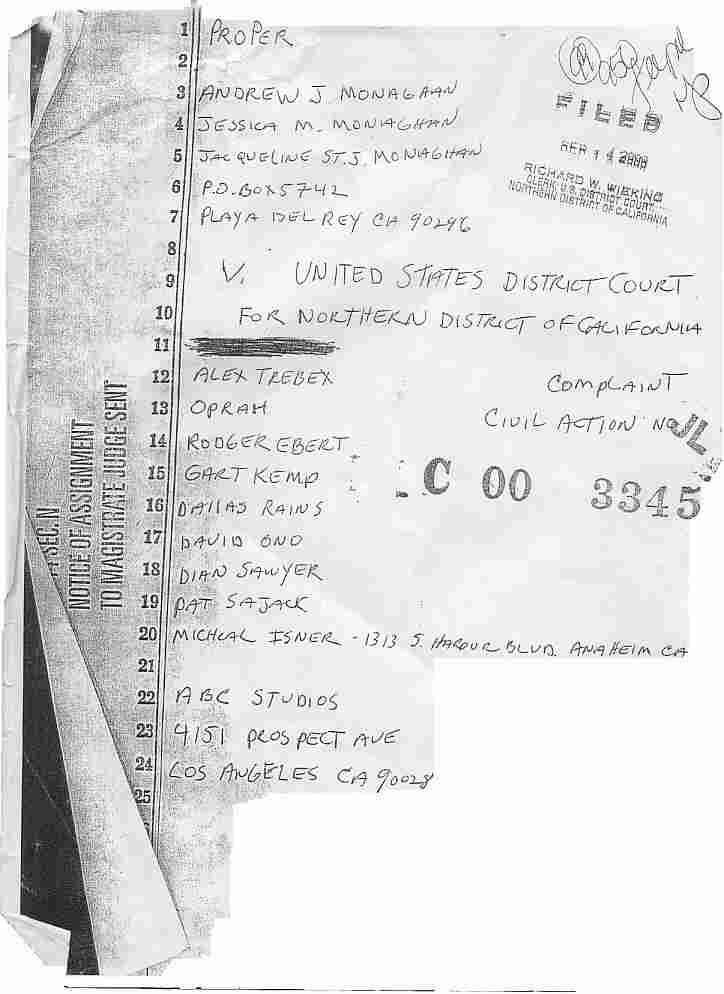 1 PROPER
2
3 ANDREW J. MONAGAAN
4 JESSICA M. MONAGHAN
5 JACQUELINE ST.J. MONAGHAN
6 P.O. BOX 5742
7 PLAYA DEL REY CA 90296
FILED
SEP 14 2000
RICHARD W. WIEKING
CLERK, U.S. DISTRICT COURT
NORTHERN DISTRICT OF CALIFORNIA
8
9 V. UNITED STATES DISTRICT COURT
10 FOR NORTHERN DISTRICT OF CALIFORNIA
11
12 ALEX TREBEX COMPLAINT
13 OPRAH CIVIL ACTION NO
JL
14 RODGER EBERT
15 GART KEMP C 00 3345
16 DALLAS RAINS
17 DAVID ONO
18 DIAN SAWYER
19 PAT SAJACK
20 MICHEAL ISNER - 1313 S. HARBOUR BLVD. ANAHEIM CA
21
22 ABC STUDIOS
23 4151 PROSPECT AVE
24 LOS ANGELES CA 90028
25
NOTICE OF ASSIGNMENT
TO MAGISTRATE JUDGE SENT